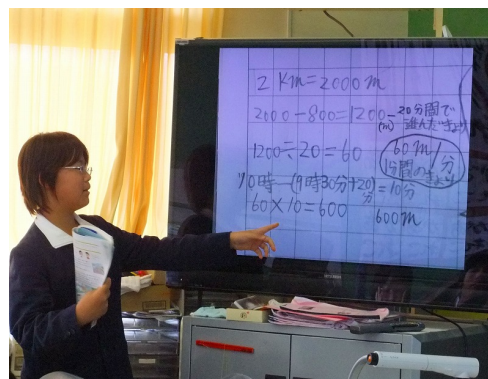 2 Km=2000m
2000-800=1200-20分間で
(m) 進んだきょり
1200÷20=60
60m/分
1分間のきょり
10時-(9時30分+20分)=10分
60×10=600 600m